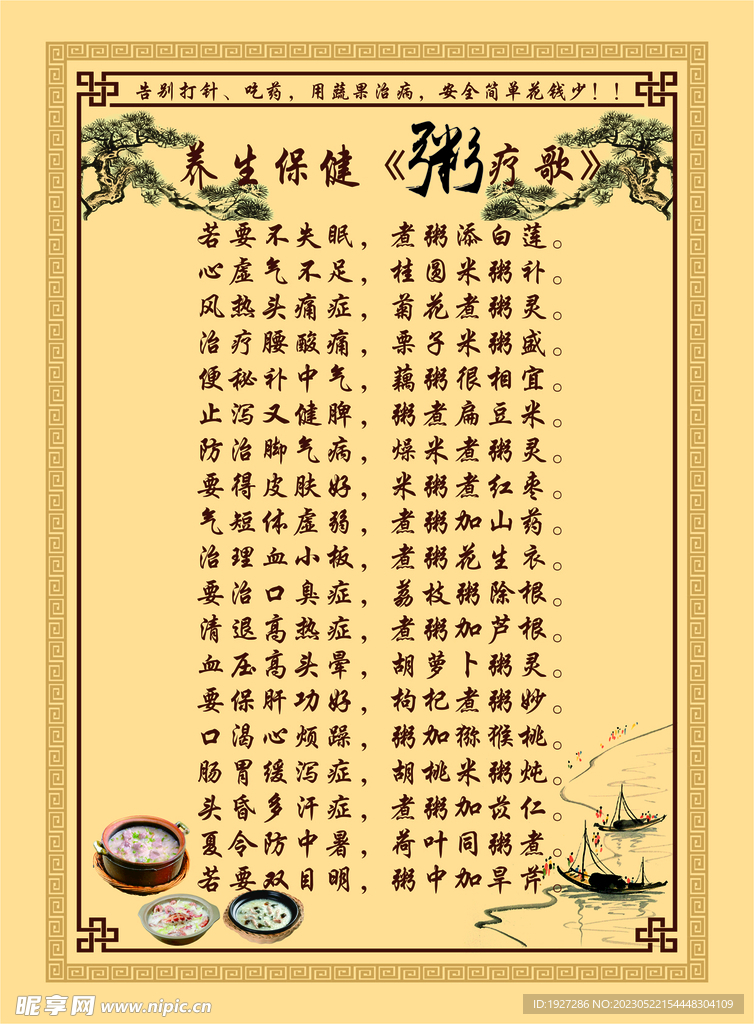 告别打针、吃药，用蔬果治病，安全简单花钱少！！
养生保健《粥疗歌》
若要不失眠，煮粥添白莲。
心虚气不足，桂圆米粥补。
风热头痛症，菊花煮粥灵。
治疗腰酸痛，栗子米粥盛。
便秘补中气，藕粥很相宜。
止泻又健脾，粥煮扁豆米。
防治脚气病，燥米煮粥灵。
要得皮肤好，米粥煮红枣。
气短体虚弱，煮粥加山药。
治理血小板，煮粥花生衣。
要治口臭症，荔枝粥除根。
清退高热症，煮粥加芦根。
血压高头晕，胡萝卜粥灵。
要保肝功好，枸杞煮粥妙。
口渴心烦躁，粥加猕猴桃。
肠胃缓泻症，胡桃米粥炖。
头昏多汗症，煮粥加苡仁。
夏令防中暑，荷叶同粥煮。
若要双目明，粥中加旱芹。
昵享网 www.nipic.cn
ID:1927286 NO:20230522154448304109